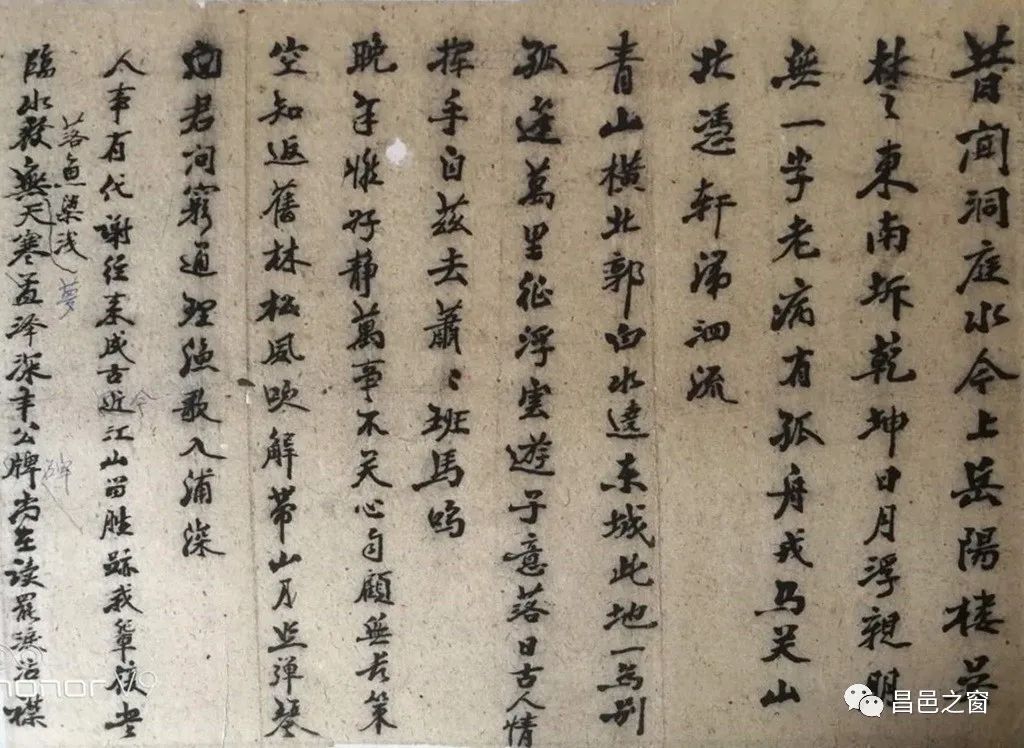 昔闻洞庭水今上岳陽楼吴
楚東南坼乾坤日月浮親朋
無一字老病有孤舟戎马关山
北憑轩涕泗流
青山横北郭白水遶东城此地一為别
孤蓬萬里征浮雲遊子意落日古人情
挥手自兹去蕭々班馬鸣
晚年惟好静萬事不关心自顧無长策
空知返舊林松風吹解带山月照弹琴
君问窮通理渔歌入浦深
人事有代謝往来成古近江山留胜跡我辈復登
今
落魚梁浅
梦
碑
臨水發無天寒孟泽深羊公牌尚在读罷淚沾襟
honor
昌邑之窗